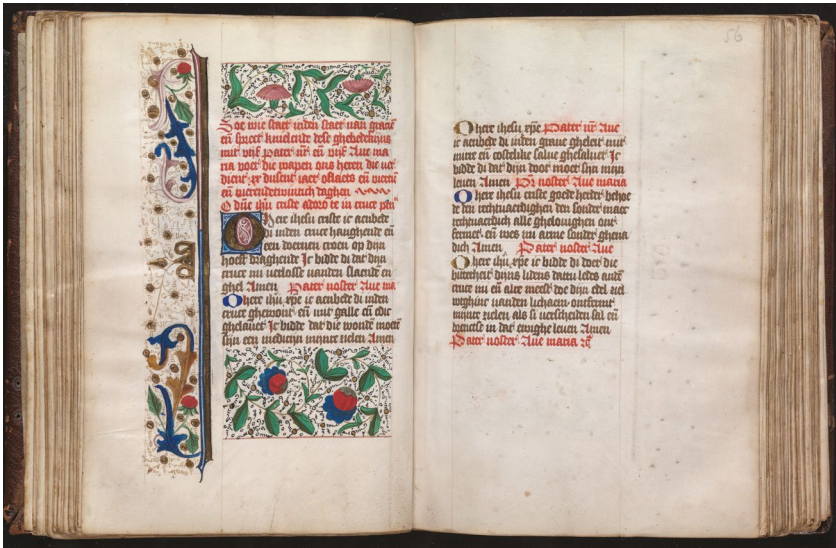 Soe wie staet inden staet van gracien
en spreect knielende dese ghebedekijns
mit vijf Pater nr en vijf Aue ma
ria voer die wapen ons heren die ver
dient xx dusent iaer oflaets en vieren
en viertichtwintich daghen
O dne ihu criste adoro te in cruce pen
O her ihesu criste ic aenbede
di inden cruce hanghende en
een doernen croen op dijn
hoeft draghende Ic bidde di dat dijn
cruce mi verlosse vanden slaende en
ghel Amen Pater noster Aue ma
O here ihu xpe ic aenbede di inden
cruce ghewont en mit galle en edic
ghelauet Ic bidde dat die wonde moet
sijn een medicijn mijnre zielen Amen
56
O here ihesu xpe Pater nr Aue
ic aenbede di inden graue gheleit mit
mirre en costelike salue ghesalvet Ic
bidde di dat dijn doot moet sijn mijn
leuen Amen Pr noster Aue maria
O here ihesu criste goede herder behoe
de den rechtuaerdighen den sonder maec
rechtuaerdich alle ghelouighen ont
fermet en wes mi arme sonder ghena
dich Amen Pater noster Aue
O here ihu xpe ic bidde di doer die
bitterheit dijns lidens dattu ledes anden
cruce mi en alre meest doe dijn edel ziel
weghinc vanden lichaem ontfermt
mijnre zielen als si verscheiden sal en
brenctse in dat ewighe leuen Amen
Pater noster Aue maria